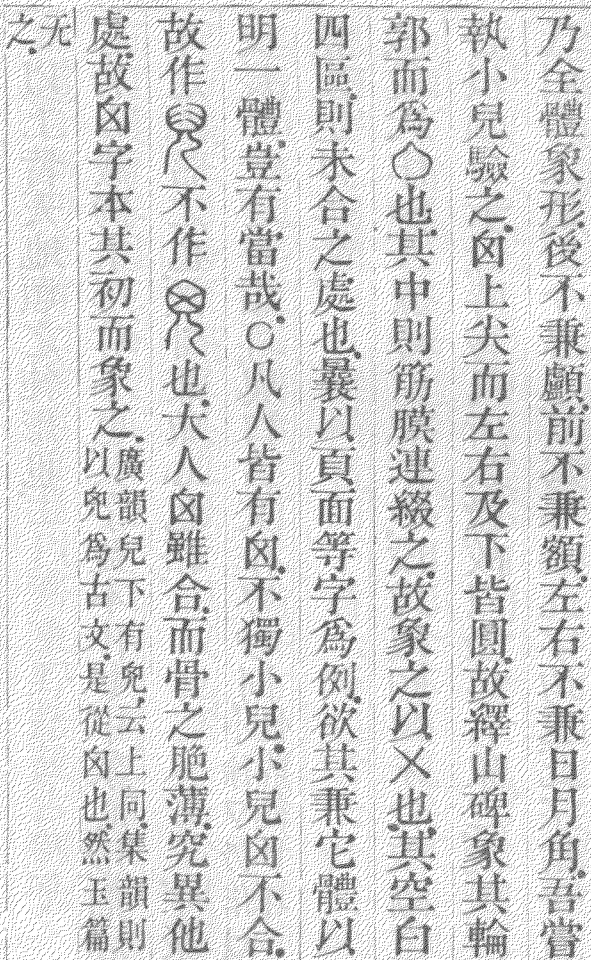 乃全體象形後不兼顱前不兼額左右不兼日月角吾嘗
執小兒驗之囟上尖而左右及下皆圓故繹山碑象其輪
郭而爲〇也其中則筋膜連綴之故象之以㐅也其空白
四區則未合之處也曩以頁面等字爲例欲其兼它體以
明一體豈有當哉〇凡人皆有囟不獨小兒小兒囟不合
故作不作也大人囟雖合而骨之脃薄究異他
處故囟字本其初而象之廣韻兒下有皃云上同集韻則
以皃爲古文是從囟也然玉篇
无
之